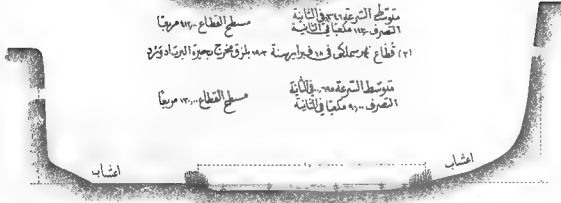 متوسط السرعة ٣٤٦,٠ في الثانية
التصرف ١١٣٠ مكعبا في الثانية مسطح القطاع ٩١٣٠,٠ مربعا
(٢) قطاع نهر سملكى في ١٨ فبراير سنة ١٩٠٣ بلزق مخرج بحيرة البرت ادورد
متوسط السرعة ٦٨٥,٠ في الثانية
التصرف ٩٠,٠٠ مكعبا في الثانية مسطح القطاع ١٣٠,٠٠ مربعا
اعشاب
اعشاب